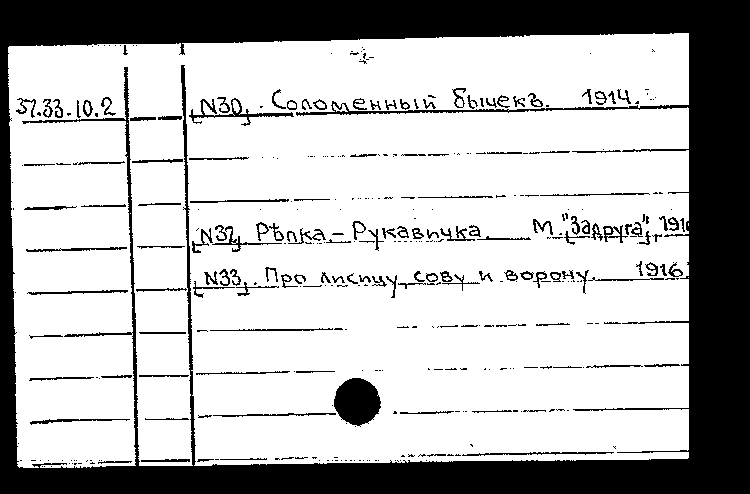 -2-
37.33.10.2 [N30]. Соломенный бычекъ. 1914.
[N32]. Рѣпка.-Рукавичка. М. ["Задруга"], 191
[N33]. Про лисицу, сову и ворону. 1916.